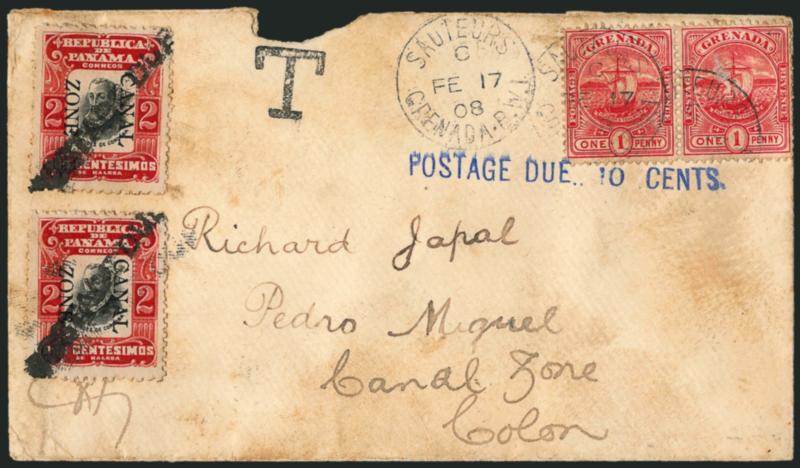 REPUBLICA
DE
PANAMA
CORREOS
CANAL
ZONE
2 2
CENTESIMOS
DE BALBOA
T
SAUTEURS
FE 17
08
GRENADA·B.W.I
GRENADA
POSTAGE
REVENUE
ONE 1 PENNY
GRENADA
REVENUE
ONE 1 PENNY
POSTAGE DUE.. 10 CENTS.
REPUBLICA
DE
PANAMA
CORREOS
CANAL
ZONE
2 2
CENTESIMOS
DE BALBOA
Richard Japal
Pedro Miguel
Canal Zone
Colon